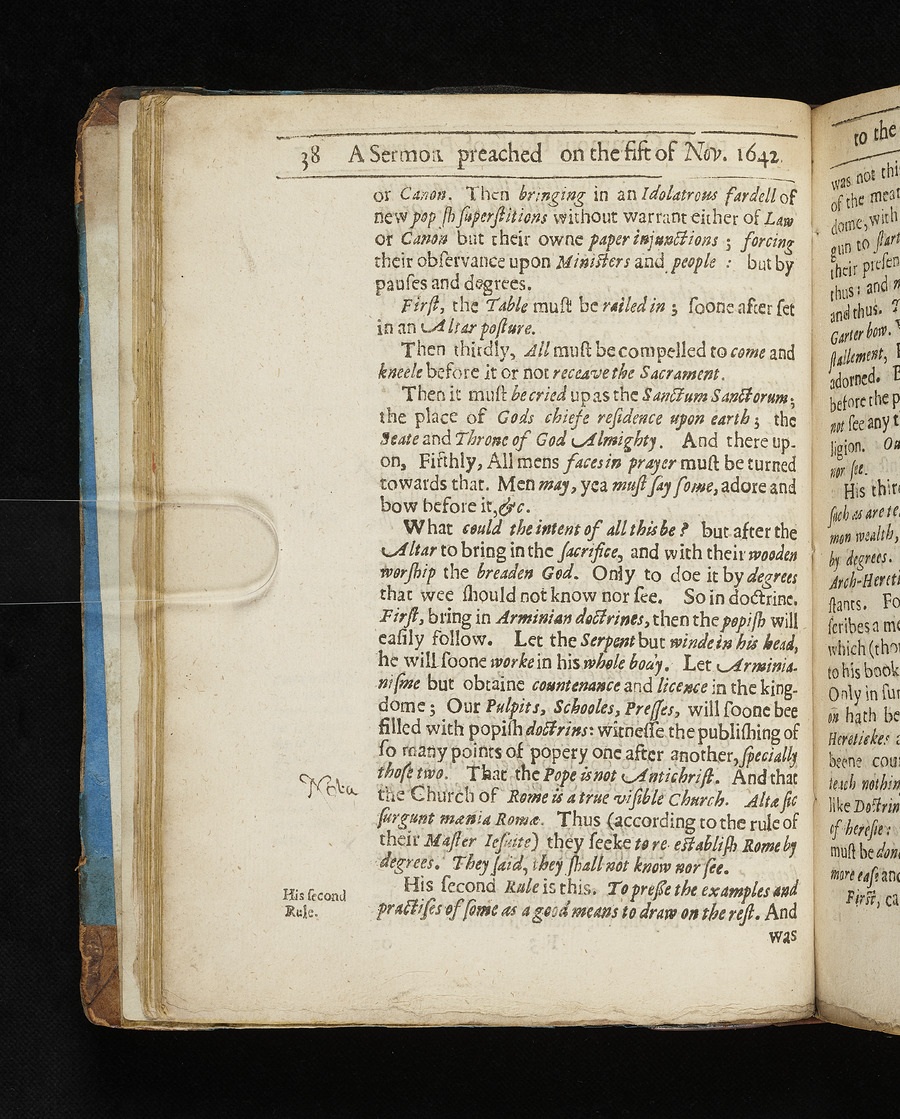 38 A Sermon preached on the fift of Nov. 1642.
or Canon. Then bringing in an Idolatrous fardell of
new pop ſh ſuperſtitions without warrant either of Law
or Canon but their owne paper injunctions ; forcing
their obſervance upon Miniſters and people : but by
pauſes and degrees.
Firſt, the Table muſt be railed in ; ſoone after ſet
in an Altar poſture.
Then thirdly, All muſt be compelled to come and
kneele before it or not receave the Sacrament.
Then it muſt be cried up as the Sanctum Sanctorum;
the place of Gods chiefe reſidence upon earth ; the
Seate and Throne of God Almighty. And there up-
on, Fifthly, All mens faces in prayer muſt be turned
towards that. Men may, yea muſt ſay ſome, adore and
bow before it, &c.
What could the intent of all this be ? but after the
Altar to bring in the ſacrifice, and with their wooden
worſhip the breaden God. Only to doe it by degrees
that wee ſhould not know nor ſee. So in doctrine.
Firſt, bring in Arminian doctrines, then the popiſh will
eaſily follow. Let the Serpent but winde in his head,
he will ſoone worke in his whole body. Let Arminia-
niſme but obtaine countenance and licence in the king-
dome ; Our Pulpits, Schooles, Preſſes, will ſoone bee
filled with popiſh doctrins: witneſſe the publiſhing of
ſo many points of popery one after another, ſpecially
thoſe two. That the Pope is not Antichriſt. And that
Nota
the Church of Rome is a true viſible Church. Alta ſic
ſurgunt mænia Romæ. Thus (according to the rule of
their Maſter Ieſuite) they ſeeke to re eſtabliſh Rome by
degrees. They ſaid, they ſhall not know nor ſee.
His ſecond
Rule.
His ſecond Rule is this. To preſſe the examples and
practiſes of ſome as a good means to draw on the reſt. And
was
to the
was not thi
of the meat
dome, with
gun to ſtart
their preſen
thus: and
and thus.
Garter bow.
ſtallement,
adorned.
before the p
not ſee any t
ligion.
nor ſee.
His thir
ſuch as are te
mon wealth,
by degrees.
Arch-Hereti
ſtants. Fo
ſcribes a me
which (tho
to his book
Only in ſu
on hath be
Heretiekes
beene cou
teach nothin
like Doctrin
of hereſie:
muſt be don
more eaſe and
Firſt, ca